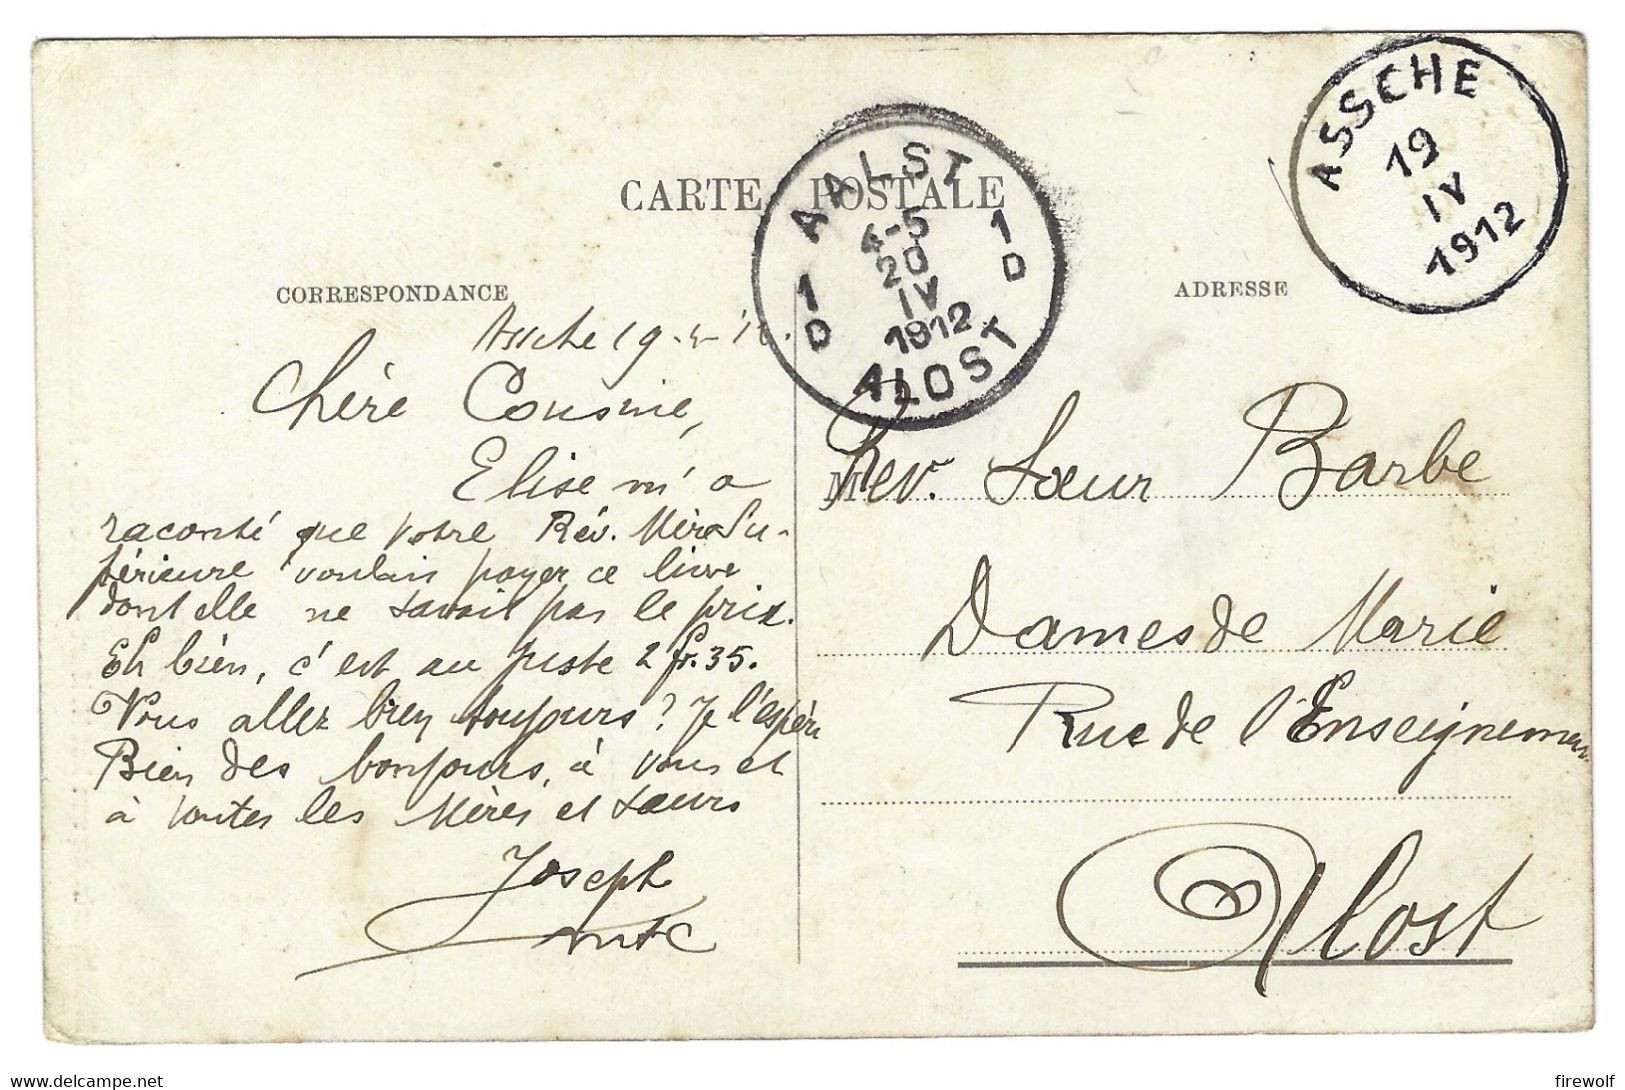 CARTE POSTALE
ASSCHE
19
IV
1912
AALST
4-5
20
IV
1912
1 D
1 D
ALOST
CORRESPONDANCE
ADRESSE
Assche 19
Chère Cousine,
Elise m'a
raconté que votre Rév. Mère Su-
périeure voulais payer ce livre
dont elle ne savait pas le prix.
Eh bien, c'est au juste 2 fr. 35.
Vous allez bien toujours? Je l'espère
Bien des bonjours, à vous et
à toutes les Mères et Sœurs
Joseph
M
Rev. Sœur Barbe
Dames de Marie
Rue de l'Enseignement
Alost
delcampe.net
firewolf